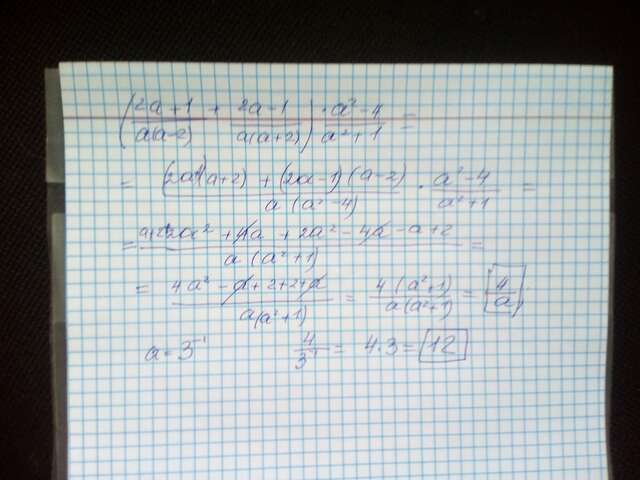 (2a+1/a(a-2) + 2a-1/a(a+2)) · a²-4/a²+1 =
= (2a+1)(a+2) + (2a-1)(a-2)/a(a²-4) · a²-4/a²+1 =
= a+2+2a²+4a+2a²-4a-a+2/a(a²+1) =
= 4a²-a+2+2+a/a(a²+1) = 4(a²+1)/a(a²+1) = 4/a;
a=3⁻¹ 4/3⁻¹ = 4·3 = 12